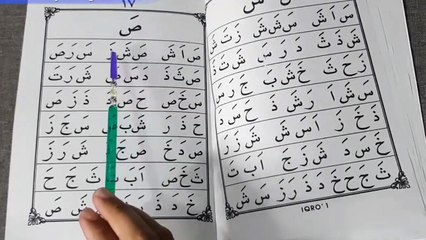 ١٧
صَ
صَ اَ شَ صَ شَ رَ سَ رَ صَ
صَ ثَ ذَ دَ سَ صَ شَ رَ تَ
سَ خَ صَ حَ صَ دَ ذَ زَ صَ
حَ ذَ رَ شَ بَ سَ جَ زَ
صَ دَ خَ صَ جَ شَ رَ زَ
ثَ خَ صَ اَ بَ تَ ثَ جَ حَ
خَ دَ ذَ شَ صَ
سَ اَ شَ سَ شَ سَ زَ تَ شَ
شَ ذَ ثَ دَ رَ سَ شَ ثَ
زَ حَ ثَ خَ شَ بَ جَ رَ سَ
شَ سَ اَ رَ شَ ذَ حَ سَ دَ
ذَ خَ زَ اَ سَ شَ سَ زَ رَ
حَ سَ دَ شَ زَ جَ اَ بَ تَ
ثَ جَ حَ خَ دَ ذَ رَ زَ سَ شَ
IQRO' 1